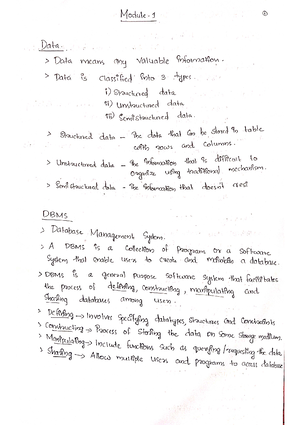 Module-1
Data.
> Data means any valuable Information.
> Data is classified into 3 types.
i) Structured data
ii) Unstructured data
iii) Semistructured data.
> Structured data - The data that can be stored in table
with rows and columns.
> Unstructured data - The Information that is difficult to
organize using traditional mechanism.
> Semistructured data - The information that doesn't
DBMS
> Database Management System.
> A DBMS is a collection of program or a software
system that enable users to create and a database.
> DBMS is a general purpose software system that facilitates
the process of defining, constructing, manipulating and
sharing databases among users.
> Defining -> Involves specifying datatypes, structures and constraints
> Constructing -> Process of storing the data on some storage medium.
> Manipulating -> Include functions such as querying / requesting the data
> Sharing -> Allow multiple users and programs to access database